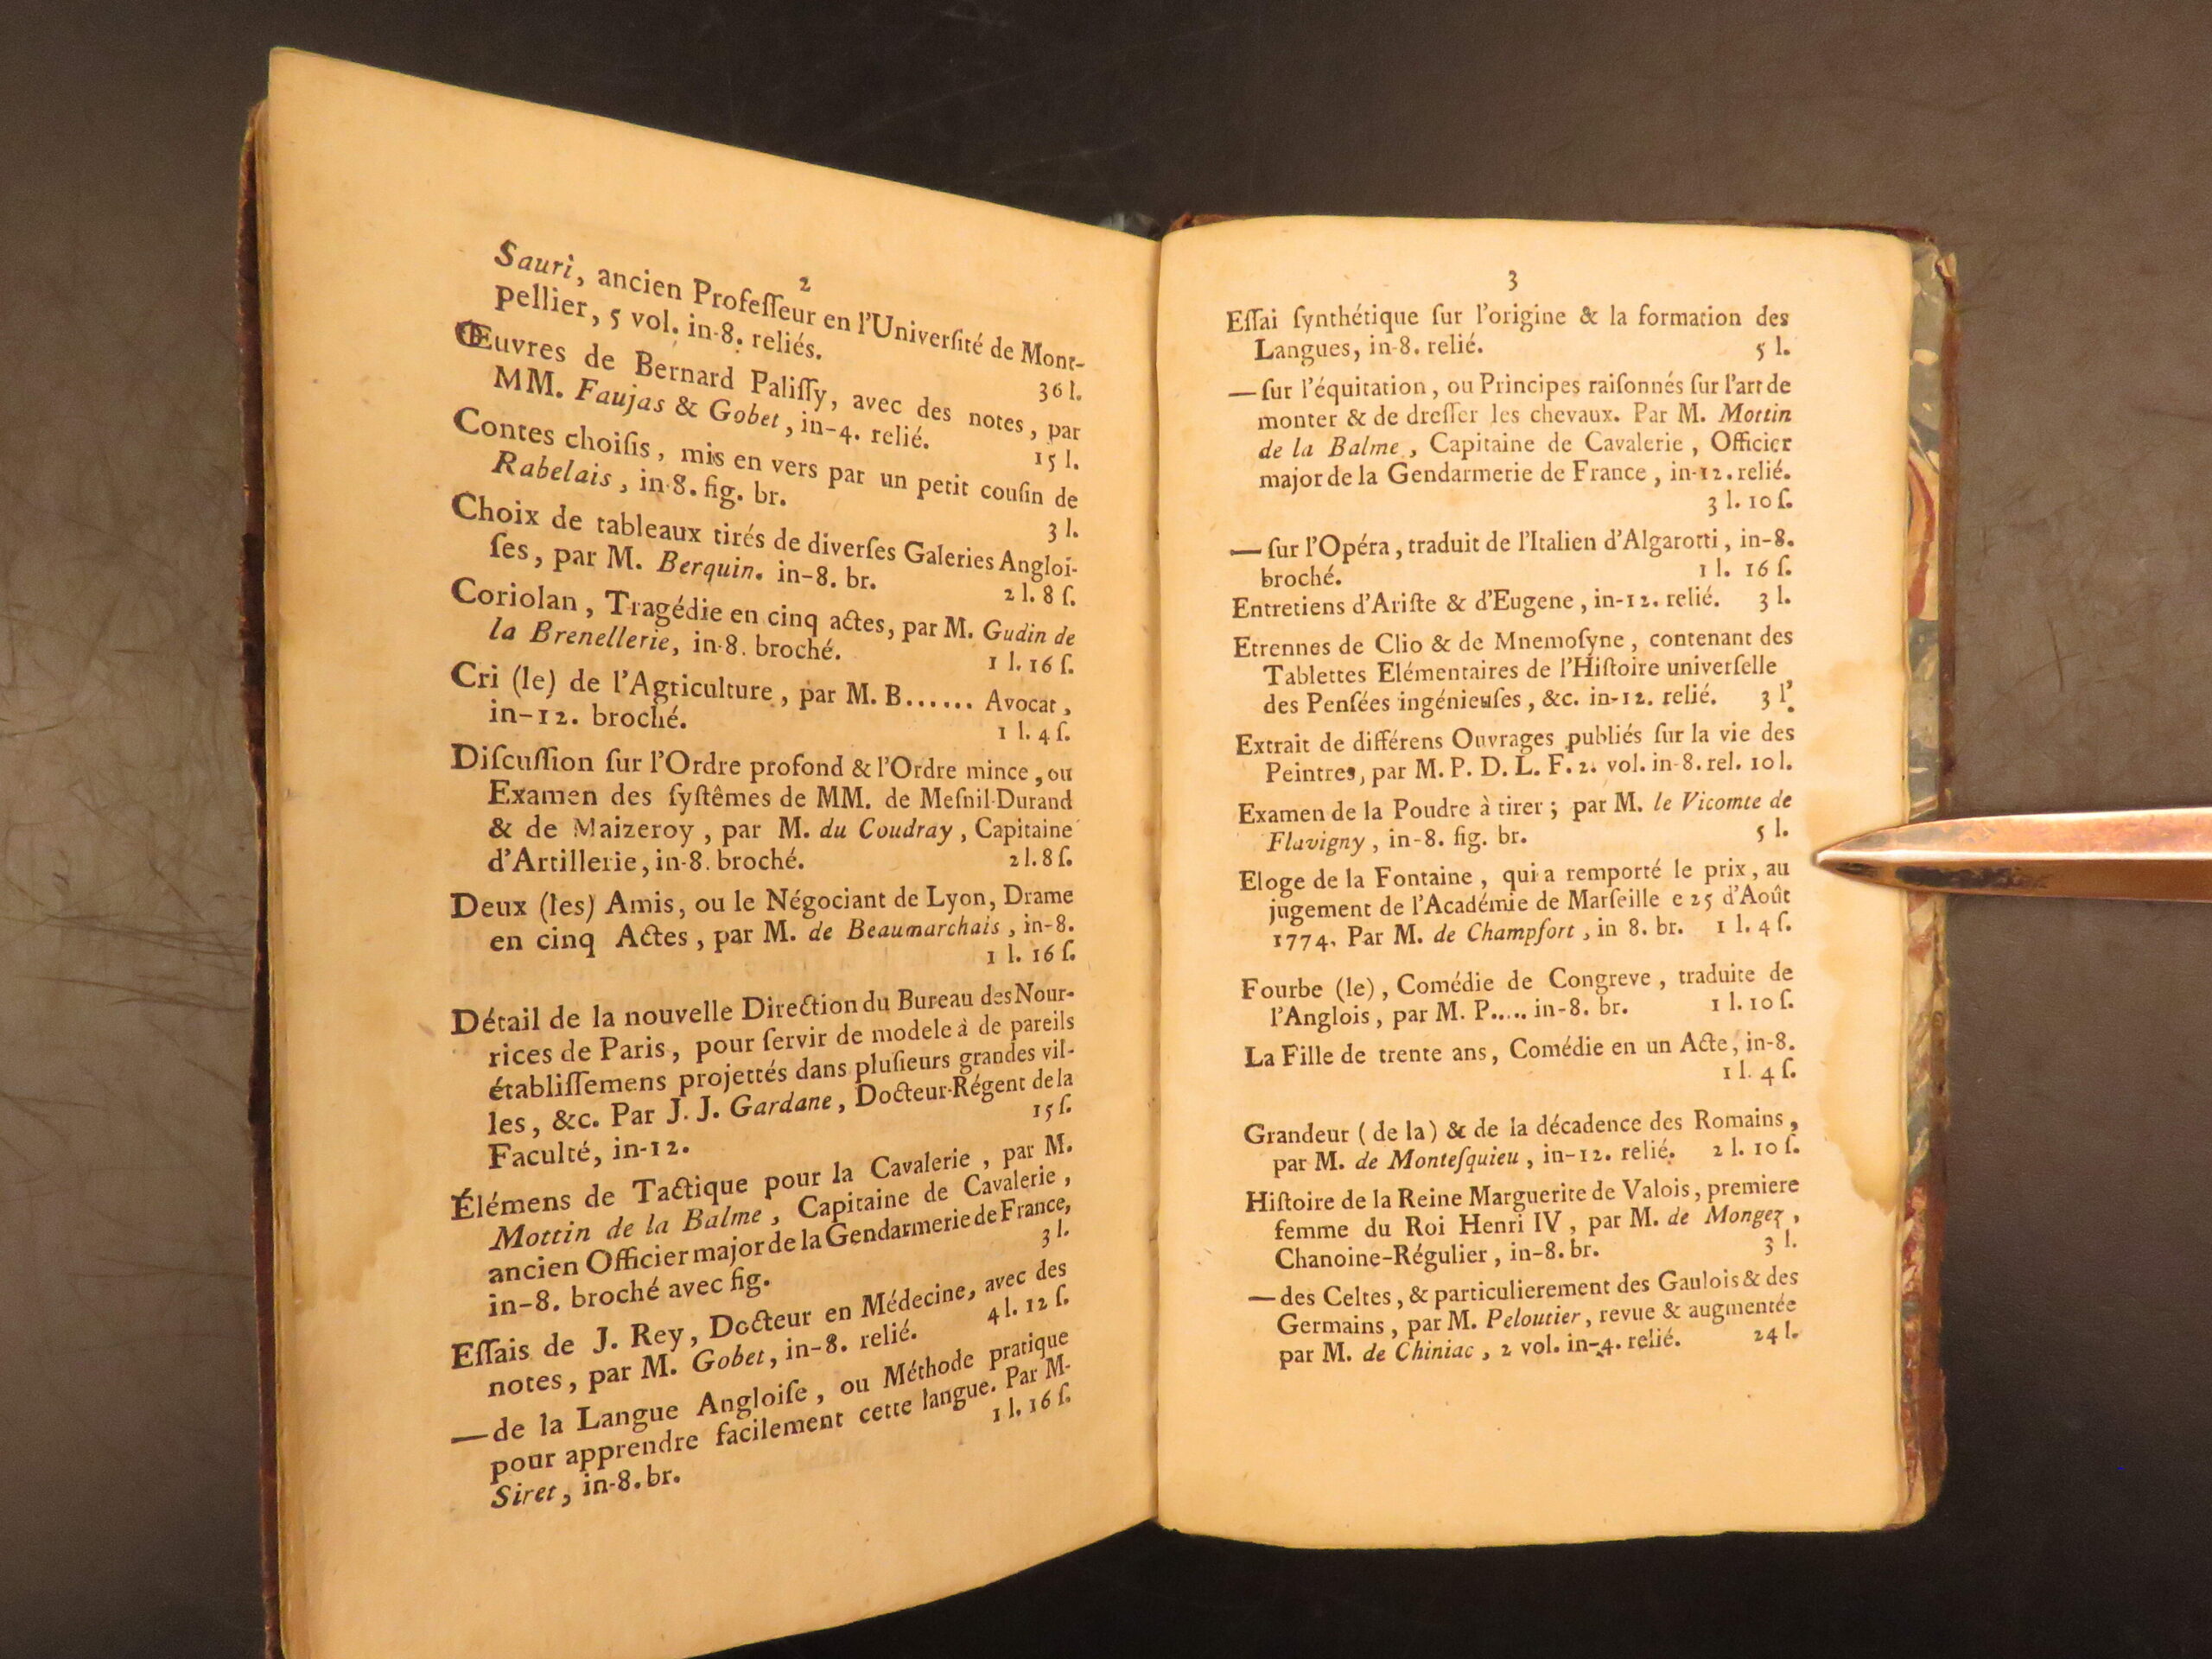 2
Sauri, ancien Profeſſeur en l'Univerſité de Mont-
pellier, 5 vol. in-8. reliés. 36 l.
Œuvres de Bernard Paliſſy, avec des notes, par
MM. Faujas & Gobet, in-4. relié. 15 l.
Contes choiſis, mis en vers par un petit couſin de
Rabelais, in-8. fig. br. 3 l.
Choix de tableaux tirés de diverſes Galeries Angloi-
ſes, par M. Berquin. in-8. br. 2 l. 8 ſ.
Coriolan, Tragédie en cinq actes, par M. Gudin de
la Brenellerie, in-8. broché. 1 l. 16 ſ.
Cri (le) de l'Agriculture, par M. B...... Avocat,
in-12. broché. 1 l. 4 ſ.
Diſcuſſion ſur l'Ordre profond & l'Ordre mince, ou
Examen des ſyſtêmes de MM. de Meſnil-Durand
& de Maizeroy, par M. du Coudray, Capitaine
d'Artillerie, in-8. broché. 2 l. 8 ſ.
Deux (les) Amis, ou le Négociant de Lyon, Drame
en cinq Actes, par M. de Beaumarchais, in-8.
1 l. 16 ſ.
Détail de la nouvelle Direction du Bureau des Nour-
rices de Paris, pour ſervir de modele à de pareils
établiſſemens projettés dans pluſieurs grandes vil-
les, &c. Par J. J. Gardane, Docteur-Régent de la
Faculté, in-12. 15 ſ.
Élémens de Tactique pour la Cavalerie, par M.
Mottin de la Balme, Capitaine de Cavalerie,
ancien Officier major de la Gendarmerie de France,
in-8. broché avec fig. 3 l.
Eſſais de J. Rey, Docteur en Médecine, avec des
notes, par M. Gobet, in-8. relié. 4 l. 12 ſ.
—de la Langue Angloiſe, ou Méthode pratique
pour apprendre facilement cette langue. Par M.
Siret, in-8. br. 1 l. 16 ſ.
3
Eſſai ſynthétique ſur l'origine & la formation des
Langues, in-8. relié. 5 l.
—ſur l'équitation, ou Principes raiſonnés ſur l'art de
monter & de dreſſer les chevaux. Par M. Mottin
de la Balme, Capitaine de Cavalerie, Officier
major de la Gendarmerie de France, in-12. relié.
3 l. 10 ſ.
—ſur l'Opéra, traduit de l'Italien d'Algarotti, in-8.
broché. 1 l. 16 ſ.
Entretiens d'Ariſte & d'Eugene, in-12. relié. 3 l.
Etrennes de Clio & de Mnemoſyne, contenant des
Tablettes Elémentaires de l'Hiſtoire univerſelle
des Penſées ingénieuſes, &c. in-12. relié. 3 l.
Extrait de différens Ouvrages publiés ſur la vie des
Peintres, par M. P. D. L. F. 2. vol. in-8. rel. 10 l.
Examen de la Poudre à tirer; par M. le Vicomte de
Flavigny, in-8. fig. br. 5 l.
Eloge de la Fontaine, qui a remporté le prix, au
jugement de l'Académie de Marſeille e 25 d'Août
1774. Par M. de Champfort, in 8. br. 1 l. 4 ſ.
Fourbe (le), Comédie de Congreve, traduite de
l'Anglois, par M. P..... in-8. br. 1 l. 10 ſ.
La Fille de trente ans, Comédie en un Acte, in-8.
1 l. 4 ſ.
Grandeur (de la) & de la décadence des Romains,
par M. de Monteſquieu, in-12. relié. 2 l. 10 ſ.
Hiſtoire de la Reine Marguerite de Valois, premiere
femme du Roi Henri IV, par M. de Mongez,
Chanoine-Régulier, in-8. br. 3 l.
—des Celtes, & particulierement des Gaulois & des
Germains, par M. Peloutier, revue & augmentée
par M. de Chiniac, 2 vol. in-4. relié. 24 l.